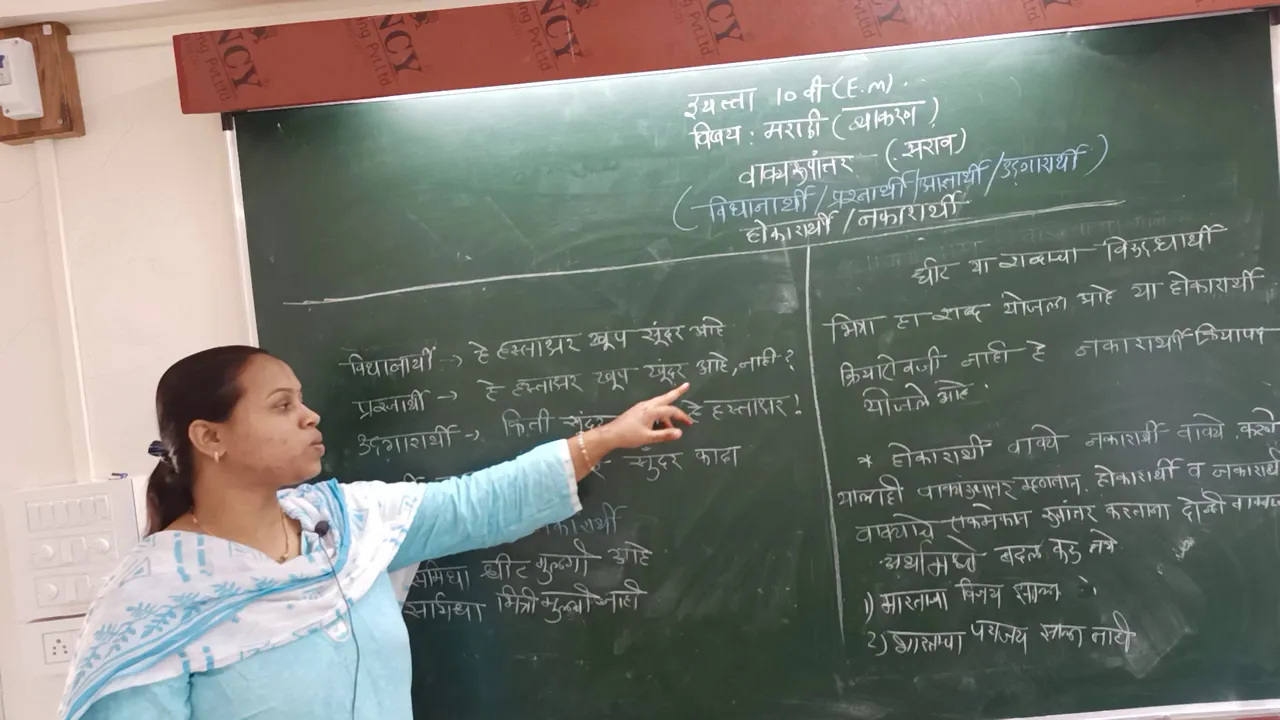 NCY
ng Pvt.Ltd
NCY
ng Pvt.Ltd
NCY
ng Pvt.Ltd
इयत्ता 10 वी (E.m).
विषय : मराठी ( व्याकरण )
वाक्यरूपांतर - (सराव)
( विधानार्थी / प्रश्नार्थी / आज्ञार्थी / उद्गारार्थी )
होकारार्थी / नकारार्थी
विधानार्थी -> हे हस्ताक्षर खूप सूंदर आहे
प्रश्नार्थी -> हे हस्ताक्षर खूप सूंदर आहे, नाही ?
उद्गारार्थी -> किती सूंदर हे हस्ताक्षर !
सुंदर काढा
कारार्थी
समिधा धीट मुलगी आहे
समिधा भित्री मुलगी नाही
धीट या शब्दाचा विरुद्धार्थी
भित्रा हा शब्द योजला आहे या होकारार्थी
क्रियाऐवजी नाही हे नकारार्थी क्रियापद
योजले आहे.
* होकारार्थी वाक्ये नकारार्थी वाक्ये करणे
यालाही वाक्यरूपांतर म्हणतात. होकारार्थी व नकारार्थी
वाक्याचे एकमेकांत रूपांतर करताना दोन्ही
अर्थामध्ये बदल करू नये
1) भारताचा विजय झाला.
2) भारताचा पराजय झाला नाही